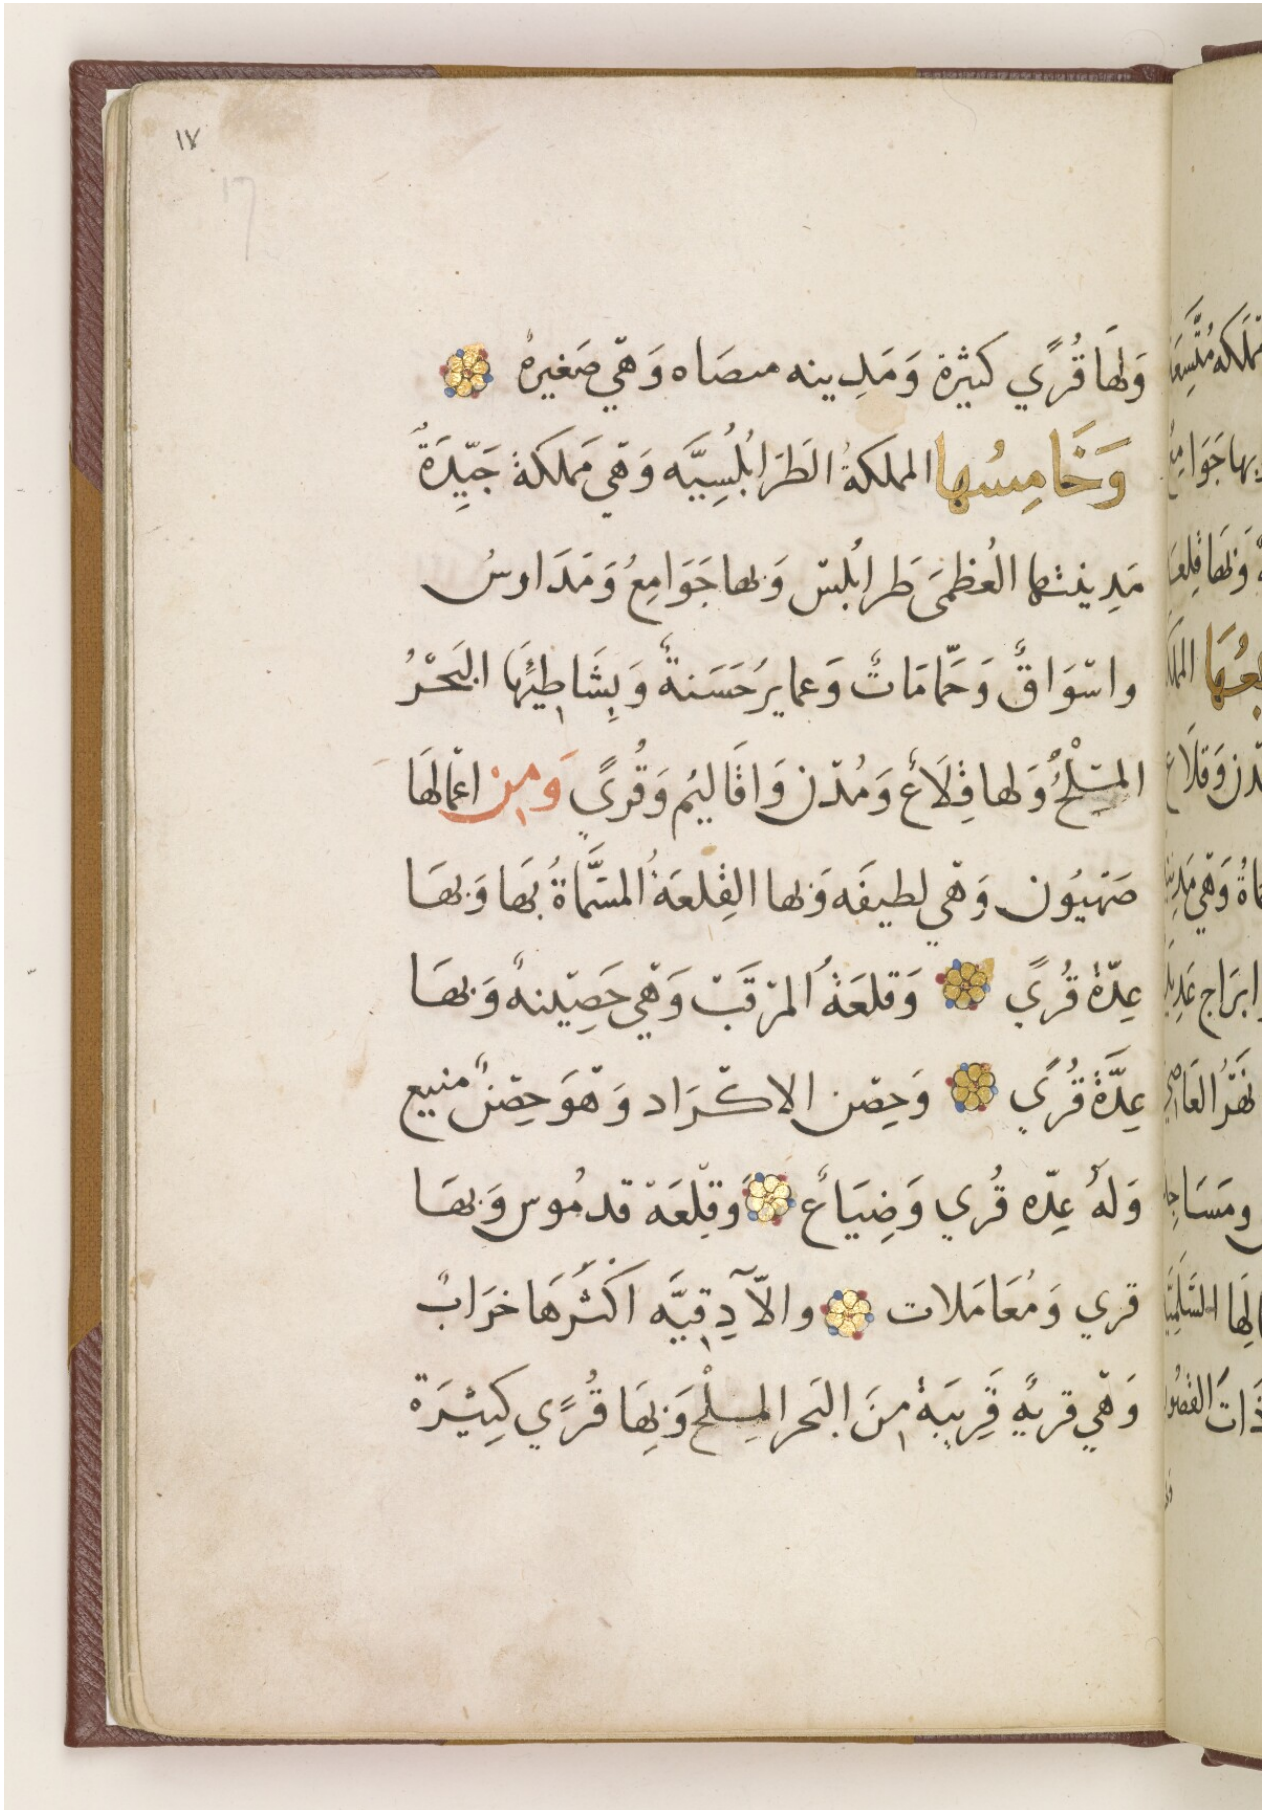 ١٧
17
وَلهَا قُرًي كثيَرة وَمَدِينه مصَاه وَهّي صَغيرهٌ
وَخَامِسُها المملكةُ الطَرَابُلُسِيَّه وَهّي مَملكة جَيِّدَةٌ
مَدِينتها العُظمَى طَرابُلس وَبها جَوَامِعُ وَمَدَارسُ
واسْوَاقٌ وَحَمّامَاتٌ وَعمايرُ حَسَنةٌ وَبِشَاطِئِهَا البَحْرُ
المِلْحُ وَلها قِلَاعٌ وَمُدن وَاقَاليُم وَقُرىً وَمِن اعْمالهَا
صَهيُون وَهّي لطيفَه وَبها القِلعَةُ المسَمَّاةُ بهَا وَبهَا
عِدّةُ قُرًي وَقلعَةُ المرْقَبْ وَهّي حَصِيْنهٌ وَبهَا
عِدَّةُ قُرًي وَحِصْن الاكْرَاد وَهْوَ حِصْنٌ منيع
وَلهُ عِدّه قُري وَضِيَاعٌ وَقِلْعَة قدمُوس وَبهَا
قري وَمُعَامَلات والاّدِقِيَّه اَكْثَرهَا خرَابٌ
وَهّي قريهٌ قَرِيَبةٌ مِنَ البَحر المِلْح وَبِهَا قُرًي كثِيْرَة